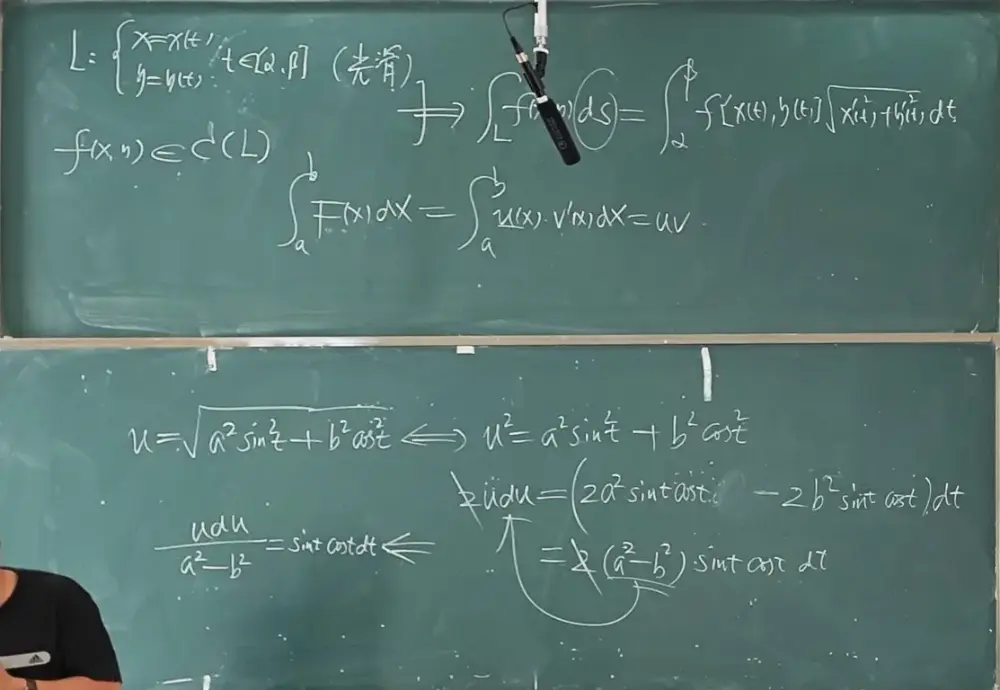 L: { x=x(t), y=y(t). t∈[α,β] (光滑)
f(x,y)∈C(L)
⟹ ∫_L f(x,y) ds = ∫_α^β f[x(t),y(t)]√(x'(t)²+y'(t)²) dt
∫_a^b F(x)dx = ∫_a^b u(x)·v'(x)dx = uv
u=√(a²sin²t+b²cos²t) ⟺ u²=a²sin²t+b²cos²t
2udu=(2a²sint cost - 2b²sint cost)dt
udu/(a²-b²) = sint cost dt ⟸
=2(a²-b²)·sint cost dt